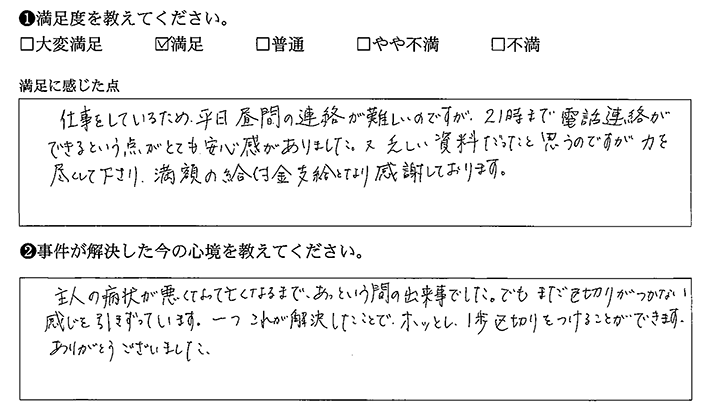 ❶満足度を教えてください。
□大変満足 ☑満足 □普通 □やや不満 □不満
満足に感じた点
仕事をしているため、平日昼間の連絡が難しいのですが、21時まで電話連絡が
できるという点がとても安心感がありました。又乏しい資料だったと思うのですが力を
尽くして下さり、満額の給付金支給となり感謝しております。
❷事件が解決した今の心境を教えてください。
主人の病状が悪くなって亡くなるまで、あっという間の出来事でした。でもまだ区切りがつかない
感じを引きずっています。一つこれが解決したことで、ホッとし、1歩区切りをつけることができます。
ありがとうございました。